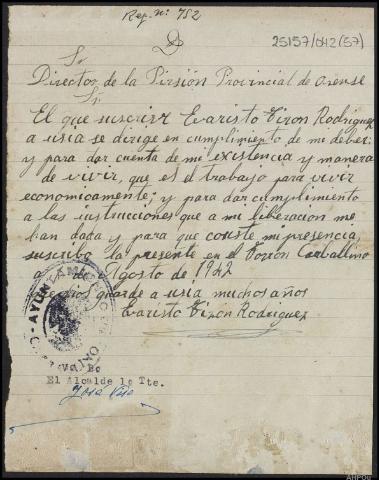 Reg. nº 752
25157/042(57)
Sr
Director de la Pirsión Provincial de orense
Sr
El que suscrivr Evaristo Viron Rodriguez
a usia se dirige en cumplimiento de mi deber;
y para dar cuenta de mi existencia y manera
de vivir, que es el trabajo para vivir
economicamente; y para dar cumplimiento
a las instrucciones que a mi liberacion me
han dada y para que conste mi presencia,
suscribo la presente en el Carballino
a de Agosto de 1942
guarde a usia muchos años
Evaristo Viron Rodriguez
AYUNTAMIENTO
Vº Bº
El Alcalde 1º Tte.
José
AHPOu